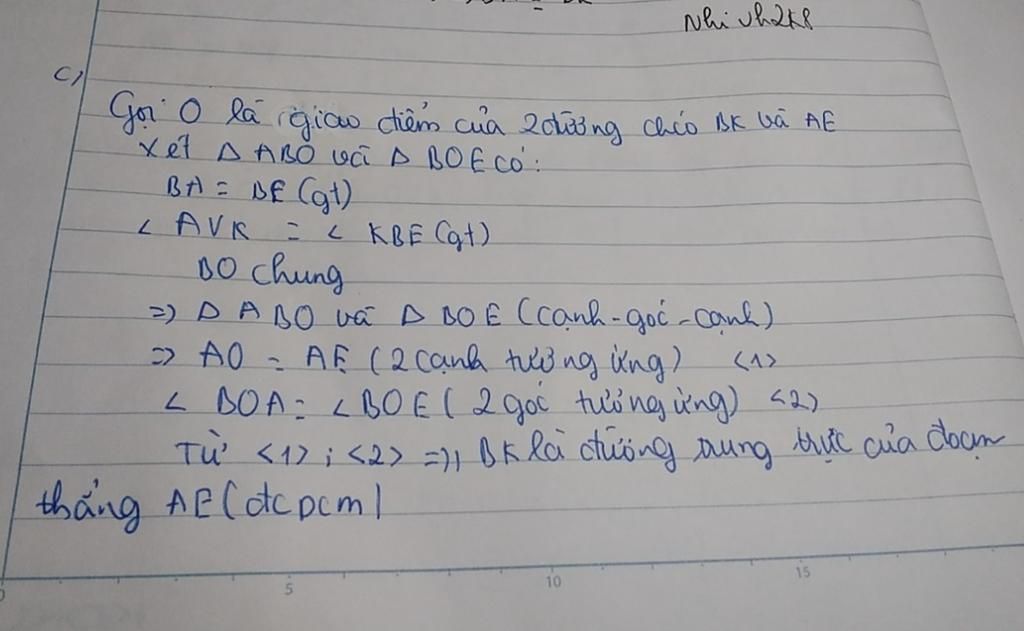 Nhi vh2K8
c,
Gọi O là giao điểm của 2 đường chéo BK và AE
Xét Δ ABO và Δ BOE có:
BA = BE (gt)
∠ AVK = ∠ KBE (gt)
BO chung
=> Δ ABO và Δ BOE (cạnh-góc-cạnh)
=> AO = AE (2 cạnh tương ứng) <1>
∠ BOA = ∠BOE (2 góc tương ứng) <2>
Từ <1>; <2> => BK là đường trung trực của đoạn
thẳng AE (đcpcm)
5 10 15